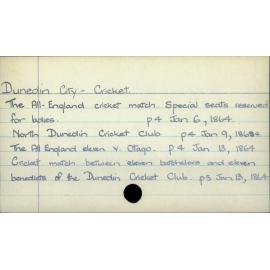 Dunedin City - Cricket.
The All-England cricket match. Special seats reserved
for ladies. p4 Jan 6, 1864.
North Dunedin Cricket Club p4 Jan 9, 1864
The All England eleven v. Otago. p.4 Jan 13, 1864
Cricket match between eleven bachelors and eleven
benedicts of the Dunedin Cricket Club. p5 Jan 13, 1864